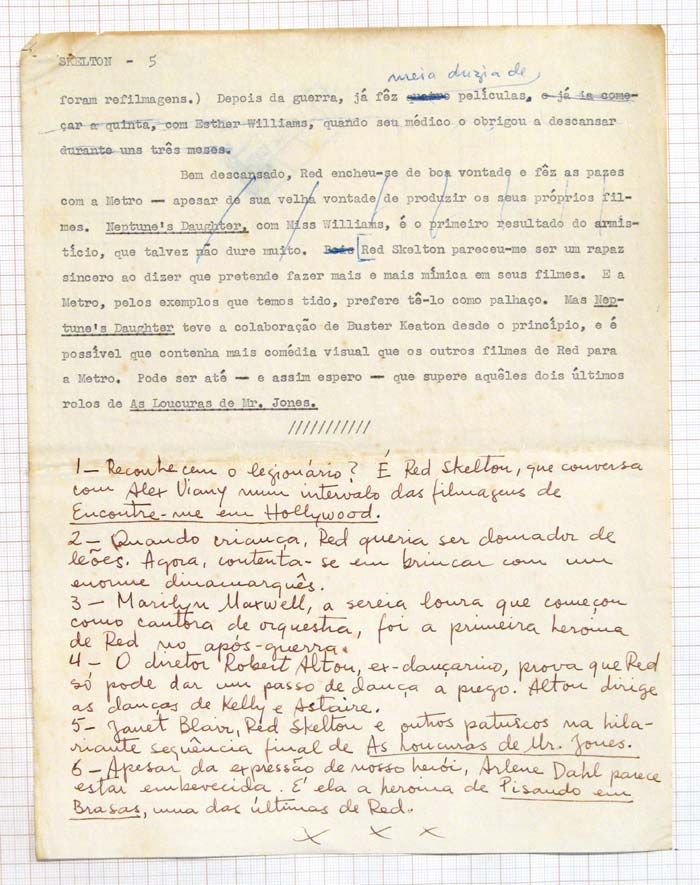 SKELTON - 5
meia duzia de
foram refilmagens.) Depois da guerra, já fêz quatro películas, e já ia come-
çar a quinta, com Esther Williams, quando seu médico o obrigou a descansar
durante uns três meses.
Bem descansado, Red encheu-se de boa vontade e fêz as pazes
com a Metro — apesar de sua velha vontade de produzir os seus próprios fil-
mes. Neptune's Daughter, com Miss Williams, é o primeiro resultado do armis-
tício, que talvez não dure muito. Bois Red Skelton pareceu-me ser um rapaz
sincero ao dizer que pretende fazer mais e mais mímica em seus filmes. E a
Metro, pelos exemplos que temos tido, prefere tê-lo como palhaço. Mas Nep-
tune's Daughter teve a colaboração de Buster Keaton desde o princípio, e é
possível que contenha mais comédia visual que os outros filmes de Red para
a Metro. Pode ser até — e assim espero — que supere aquêles dois últimos
rolos de As Loucuras de Mr. Jones.
///////////
1 — Reconhecem o legionário? É Red Skelton, que conversa
com Alex Viany num intervalo das filmagens de
Encontre-me em Hollywood.
2 — Quando criança, Red queria ser domador de
leões. Agora, contenta-se em brincar com um
enorme dinamarquês.
3 — Marilyn Maxwell, a sereia loura que começou
como cantora de orquestra, foi a primeira heroina
de Red no após-guerra.
4 — O diretor Robert Alton, ex-dançarino, prova que Red
só pode dar um passo de dança a prego. Alton dirige
as danças de Kelly e Astaire.
5 — Janet Blair, Red Skelton e outros patuscos na hila-
riante seqüência final de As Loucuras de Mr. Jones.
6 — Apesar da expressão de nosso herói, Arlene Dahl parece
estar embevecida. É ela a heroina de Pisando em
Brasas, uma das últimas de Red.
x x x